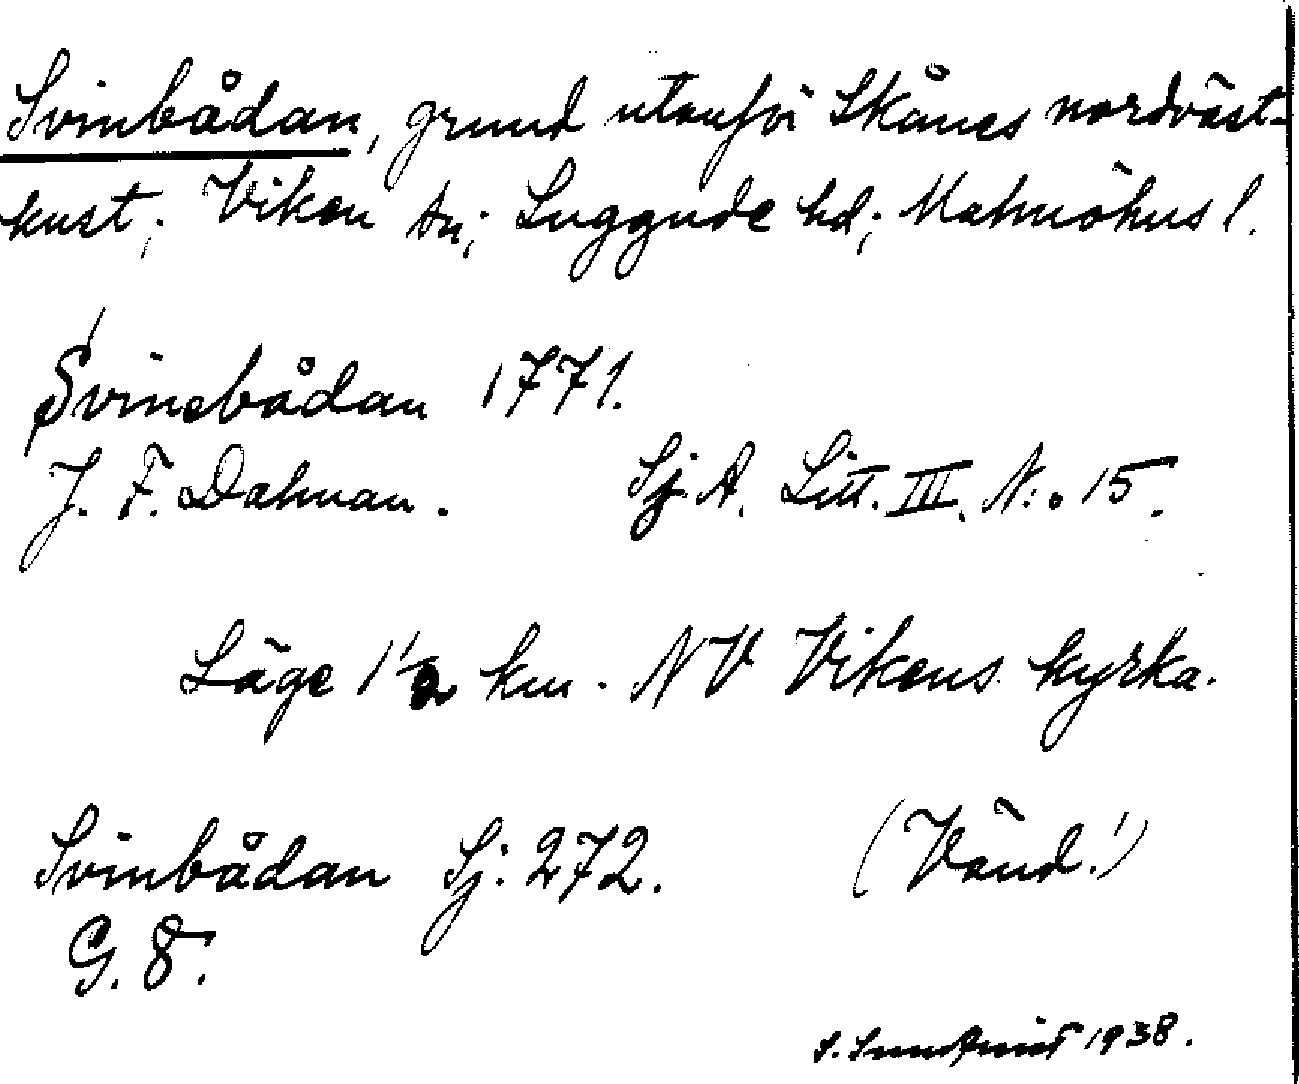 Svinbådan, grund utanför Skånes nordväst-
kust; Viken sn; Luggude hd; Malmöhus l.
Svinebådan 1771.
J. F. Dalman. Sj. A. Litt. III. N:o 15.
Läge 1 1/2 km. NV Vikens kyrka.
Svinbådan Sj: 272. (Vänd!)
G. 8.
1938.